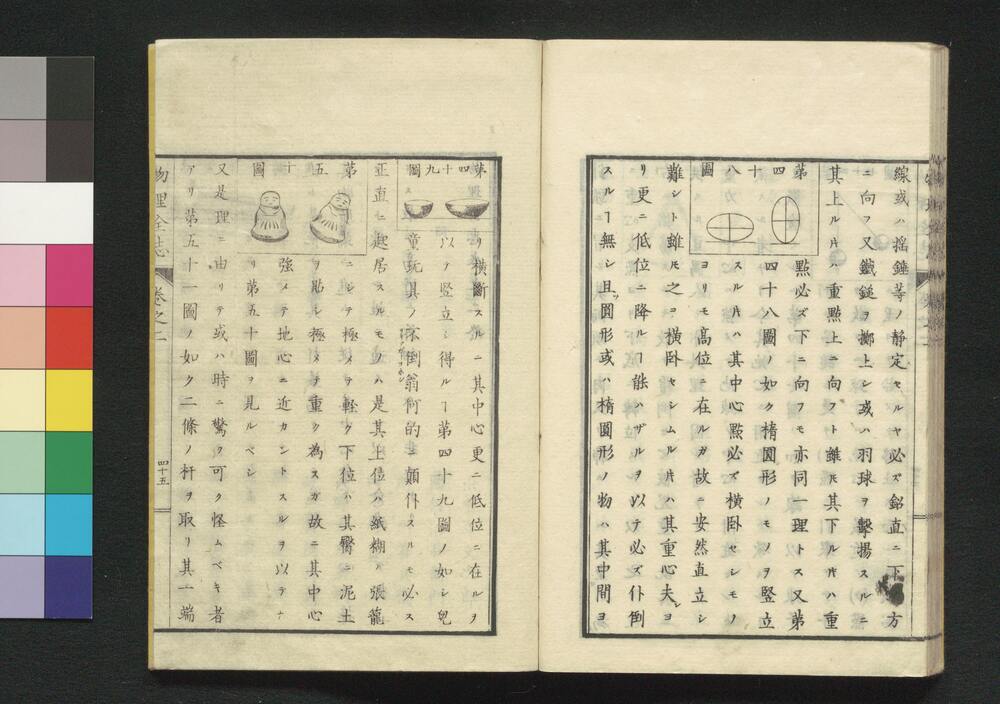 線或ハ搖錘等ノ静定セルヤ必ズ鉛直ニ下方
ニ向フ又鐵鎚ヲ擲上シ或ハ羽球ヲ擊揚スルニ
其上ル片ハ重點上ニ向フト雖𪜈其下ル片ハ重
點必ズ下ニ向フモ亦同一理トス又第
四十八圖ノ如ク楕圓形ノモノヲ竪立
スル片ハ其中心點必ズ横臥セシモノ
ヨリモ高位ニ在ルガ故ニ安然直立シ
第四十八圖
難シト雖𪜈之ヲ横臥セシムル片ハ其重心夫ヨ
リ更ニ低位ニ降ルヿ能ハザルヲ以テ必ズ仆倒
スルヿ無シ且ツ圓形或ハ楕圓形ノ物ハ其中間ヨ
リ横斷スルニ其中心更ニ低位ニ在ルヲ
以テ竪立シ得ルヿ第四十九圖ノ如シ兒
童玩具ノ不倒翁何的ニ顛仆スルモ必ス
第四十九圖
正直ニ起居スルモノハ是其上位ハ紙糊ノ張籠
ニシテ極メテ輕ク下位ハ其臀ニ泥土
ヲ貼シ極メテ重ク為スガ故ニ其中心
強メテ地心ニ近カントスルヲ以テナ
リ第五十圖ヲ見ルベシ
第五十圖
又是理ニ由リテ或ハ時ニ驚ク可ク怪ムベキ者
アリ第五十一圖ノ如ク二條ノ杆ヲ取リ其一端
物理全志
卷之二
四十五